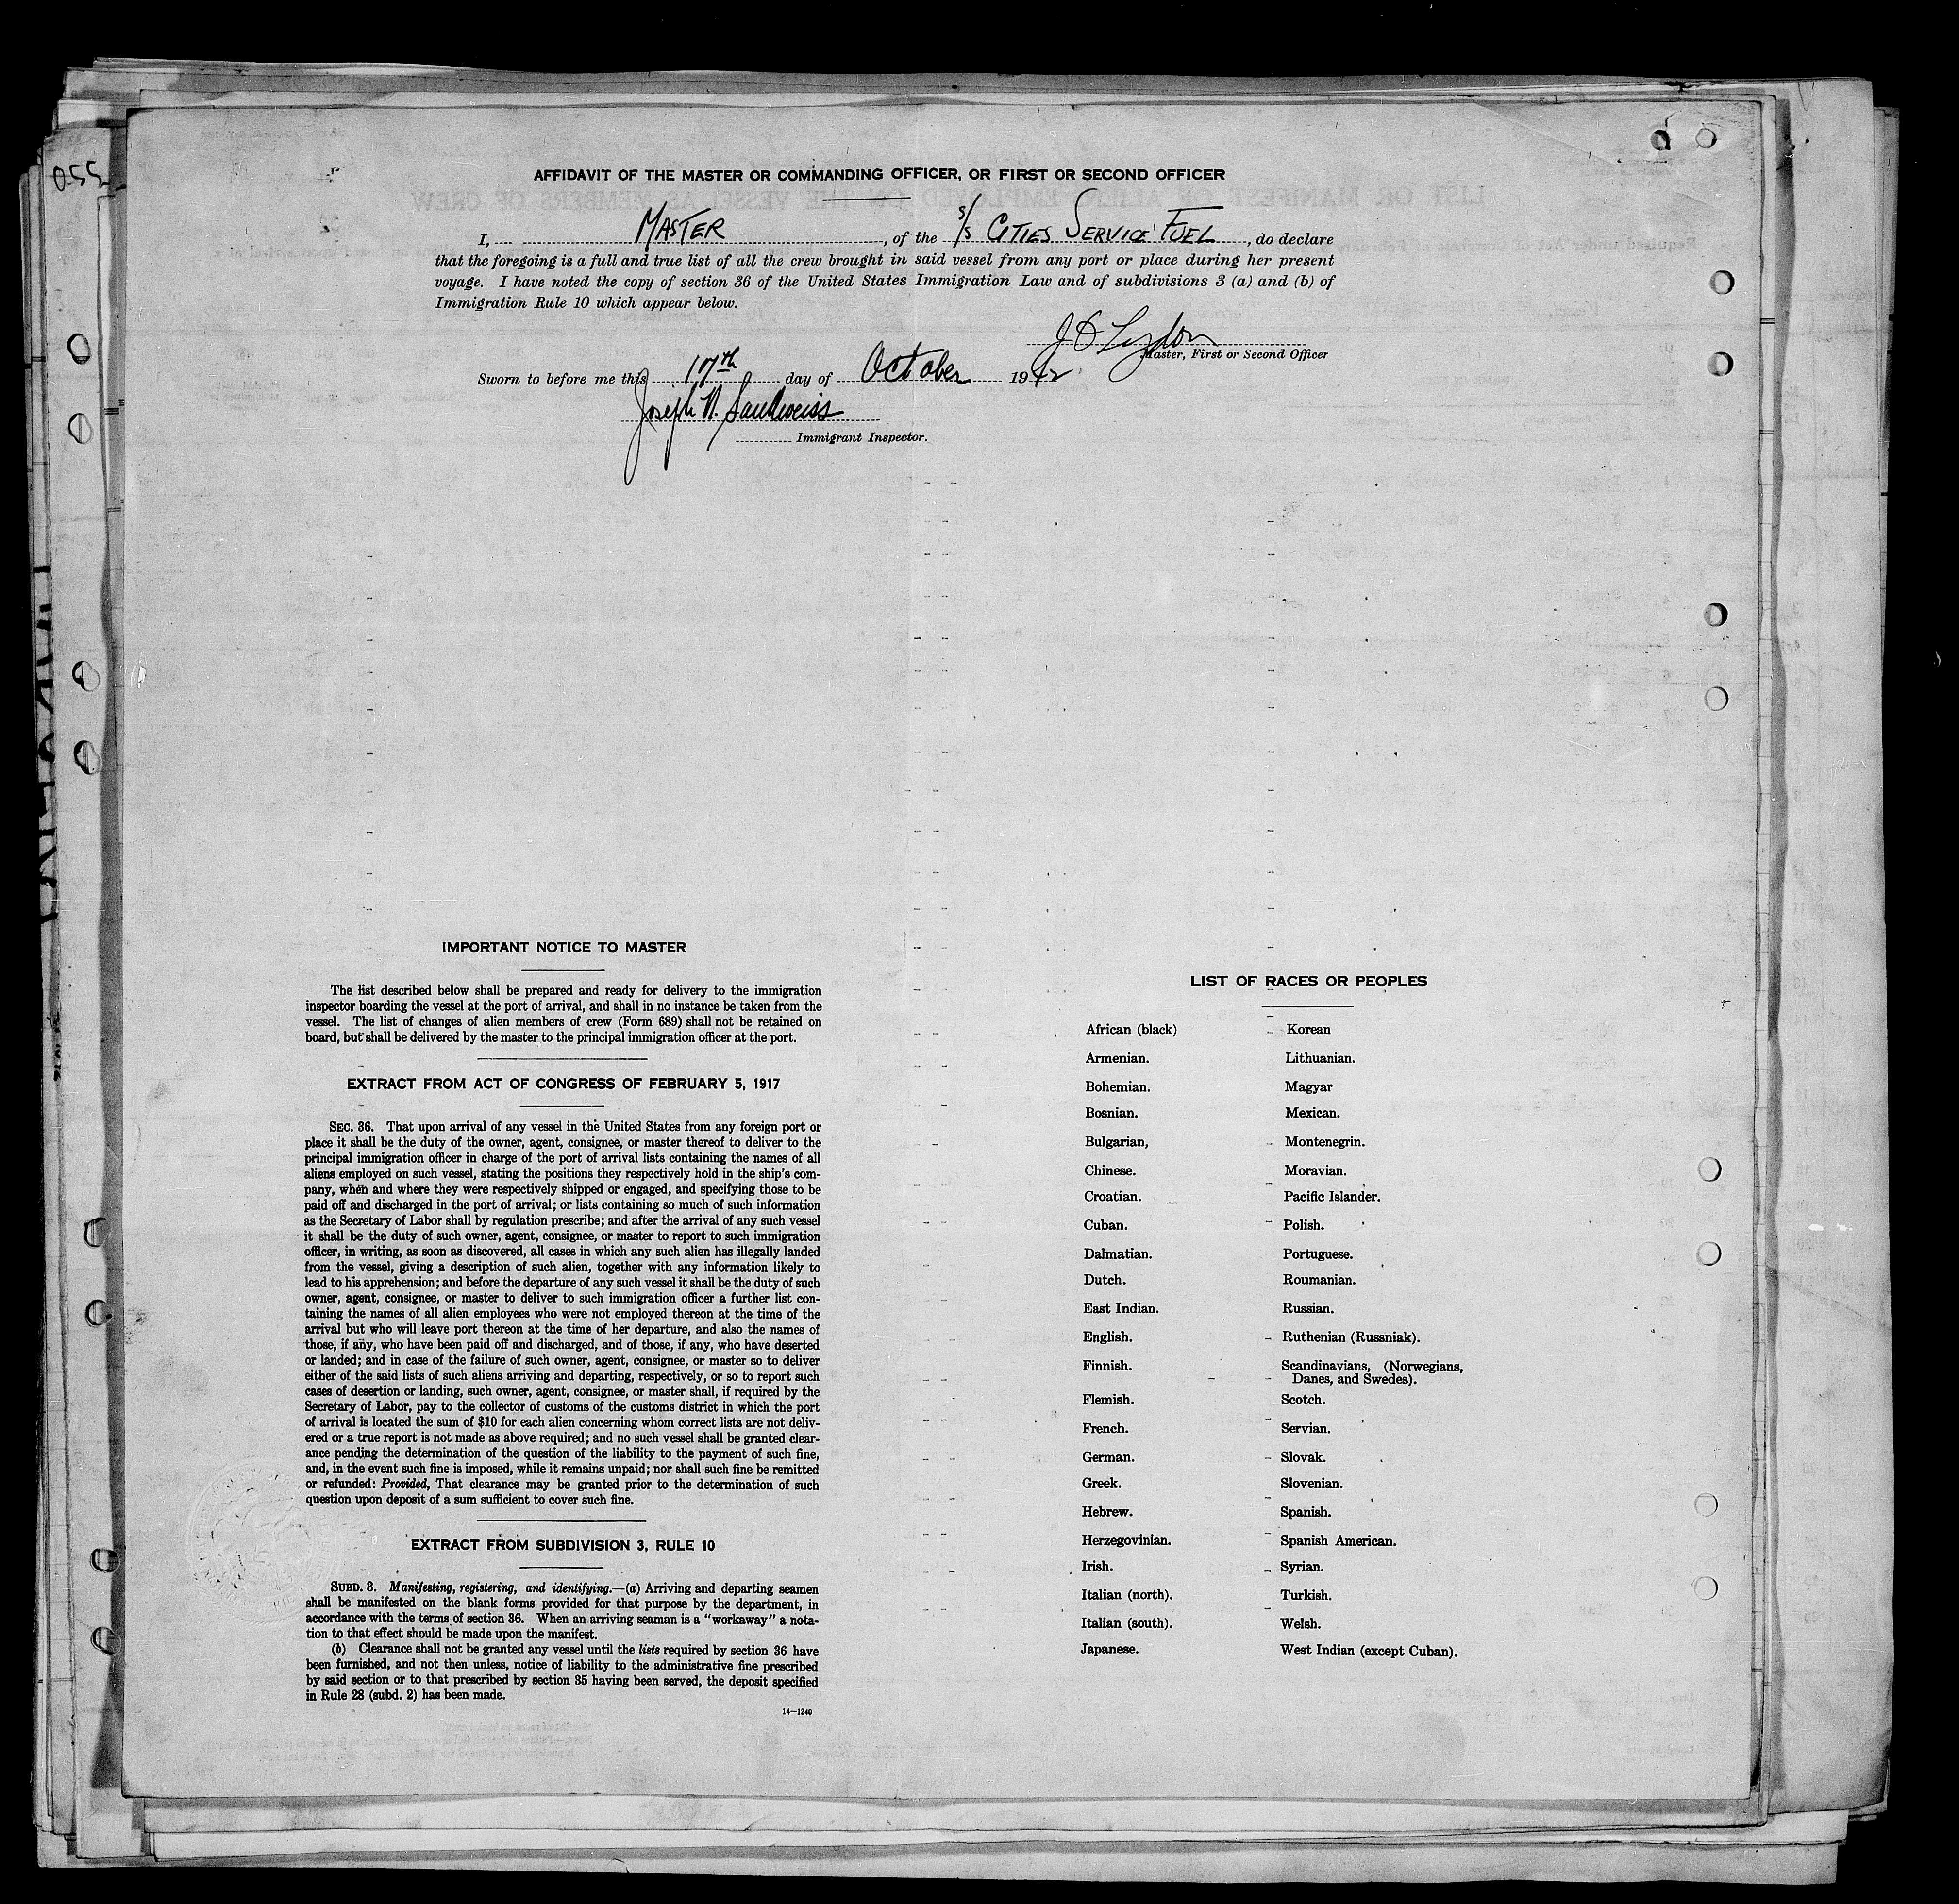 055
AFFIDAVIT OF THE MASTER OR COMMANDING OFFICER, OR FIRST OR SECOND OFFICER
I, MASTER, of the S/S CITIES SERVICE FUEL, do declare
that the foregoing is a full and true list of all the crew brought in said vessel from any port or place during her present
voyage. I have noted the copy of section 36 of the United States Immigration Law and of subdivisions 3 (a) and (b) of
Immigration Rule 10 which appear below.
Master, First or Second Officer
Sworn to before me this 17th day of October 1942
Joseph N. Sandweiss
Immigrant Inspector.
IMPORTANT NOTICE TO MASTER
The list described below shall be prepared and ready for delivery to the immigration
inspector boarding the vessel at the port of arrival, and shall in no instance be taken from the
vessel. The list of changes of alien members of crew (Form 689) shall not be retained on
board, but shall be delivered by the master to the principal immigration officer at the port.
EXTRACT FROM ACT OF CONGRESS OF FEBRUARY 5, 1917
SEC. 36. That upon arrival of any vessel in the United States from any foreign port or
place it shall be the duty of the owner, agent, consignee, or master thereof to deliver to the
principal immigration officer in charge of the port of arrival lists containing the names of all
aliens employed on such vessel, stating the positions they respectively hold in the ship's com-
pany, when and where they were respectively shipped or engaged, and specifying those to be
paid off and discharged in the port of arrival; or lists containing so much of such information
as the Secretary of Labor shall by regulation prescribe; and after the arrival of any such vessel
it shall be the duty of such owner, agent, consignee, or master to report to such immigration
officer, in writing, as soon as discovered, all cases in which any such alien has illegally landed
from the vessel, giving a description of such alien, together with any information likely to
lead to his apprehension; and before the departure of any such vessel it shall be the duty of such
owner, agent, consignee, or master to deliver to such immigration officer a further list con-
taining the names of all alien employees who were not employed thereon at the time of the
arrival but who will leave port thereon at the time of her departure, and also the names of
those, if any, who have been paid off and discharged, and of those, if any, who have deserted
or landed; and in case of the failure of such owner, agent, consignee, or master so to deliver
either of the said lists of such aliens arriving and departing, respectively, or so to report such
cases of desertion or landing, such owner, agent, consignee, or master shall, if required by the
Secretary of Labor, pay to the collector of customs of the customs district in which the port
of arrival is located the sum of $10 for each alien concerning whom correct lists are not deliv-
ered or a true report is not made as above required; and no such vessel shall be granted clear-
ance pending the determination of the question of the liability to the payment of such fine,
and, in the event such fine is imposed, while it remains unpaid; nor shall such fine be remitted
or refunded: Provided, That clearance may be granted prior to the determination of such
question upon deposit of a sum sufficient to cover such fine.
EXTRACT FROM SUBDIVISION 3, RULE 10
SUBD. 3. Manifesting, registering, and identifying.—(a) Arriving and departing seamen
shall be manifested on the blank forms provided for that purpose by the department, in
accordance with the terms of section 36. When an arriving seaman is a "workaway" a nota-
tion to that effect should be made upon the manifest.
(b) Clearance shall not be granted any vessel until the lists required by section 36 have
been furnished, and not then unless, notice of liability to the administrative fine prescribed
by said section or to that prescribed by section 35 having been served, the deposit specified
in Rule 28 (subd. 2) has been made.
14—1240
LIST OF RACES OR PEOPLES
African (black)
Armenian.
Bohemian.
Bosnian.
Bulgarian,
Chinese.
Croatian.
Cuban.
Dalmatian.
Dutch.
East Indian.
English.
Finnish.
Flemish.
French.
German.
Greek.
Hebrew.
Herzegovinian.
Irish.
Italian (north).
Italian (south).
Japanese.
Korean
Lithuanian.
Magyar
Mexican.
Montenegrin.
Moravian.
Pacific Islander.
Polish.
Portuguese.
Roumanian.
Russian.
Ruthenian (Russniak).
Scandinavians, (Norwegians,
Danes, and Swedes).
Scotch.
Servian.
Slovak.
Slovenian.
Spanish.
Spanish American.
Syrian.
Turkish.
Welsh.
West Indian (except Cuban).